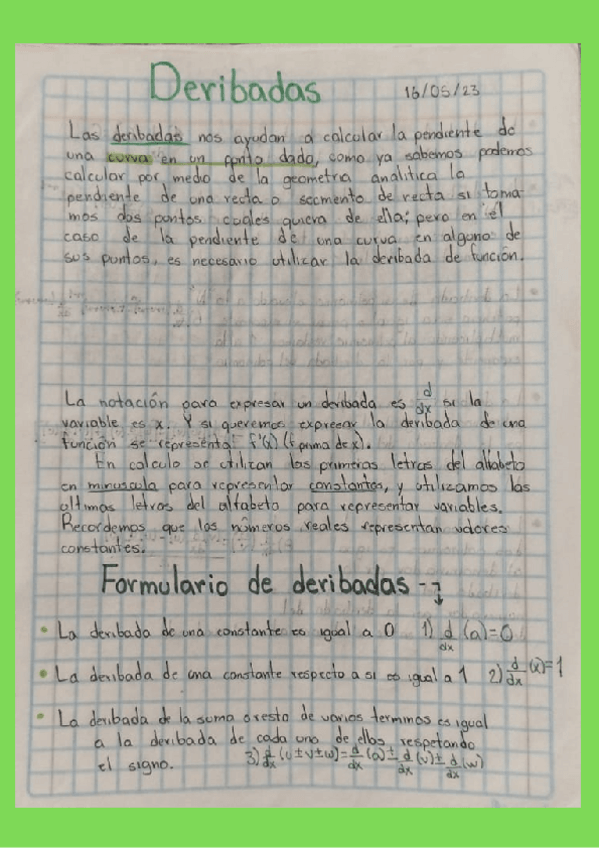 Deribadas
16/05/23
Las deribadas nos ayudan a calcular la pendiente de
una curva en un ponto dado, como ya sabemos podemos
calcular por medio de la geometria analitica la
pendiente de una recta o secmento de recta si toma
mos dos pontos cuales quiera de ella; pero en el
caso de la pendiente de una curva en alguno de
sus puntos, es necesario utilizar la deribada de función.
La notación para expresar un deribada es d/dx si la
variable es x. Y si queremos expresar la deribada de una
función se representa f'(x) (f prima de x).
En calculo se utilizan las primeras letras del alfabeto
en minuscula para representar constantes, y utilizamos las
ultimas letras del alfabeto para representar variables.
Recordemos que los números reales representan valores
constantes.
Formulario de deribadas -↴
• La deribada de una constante es igual a 0 1) d/dx (a)=0
• La deribada de una constante respecto a si es igual a 1 2) d/dx (x)=1
• La deribada de la suma o resta de varios terminos es igual
a la deribada de cada uno de ellos respetando
el signo. 3) d/dx (u±v±w)=d/dx (u)±d/dx (v)±d/dx (w)